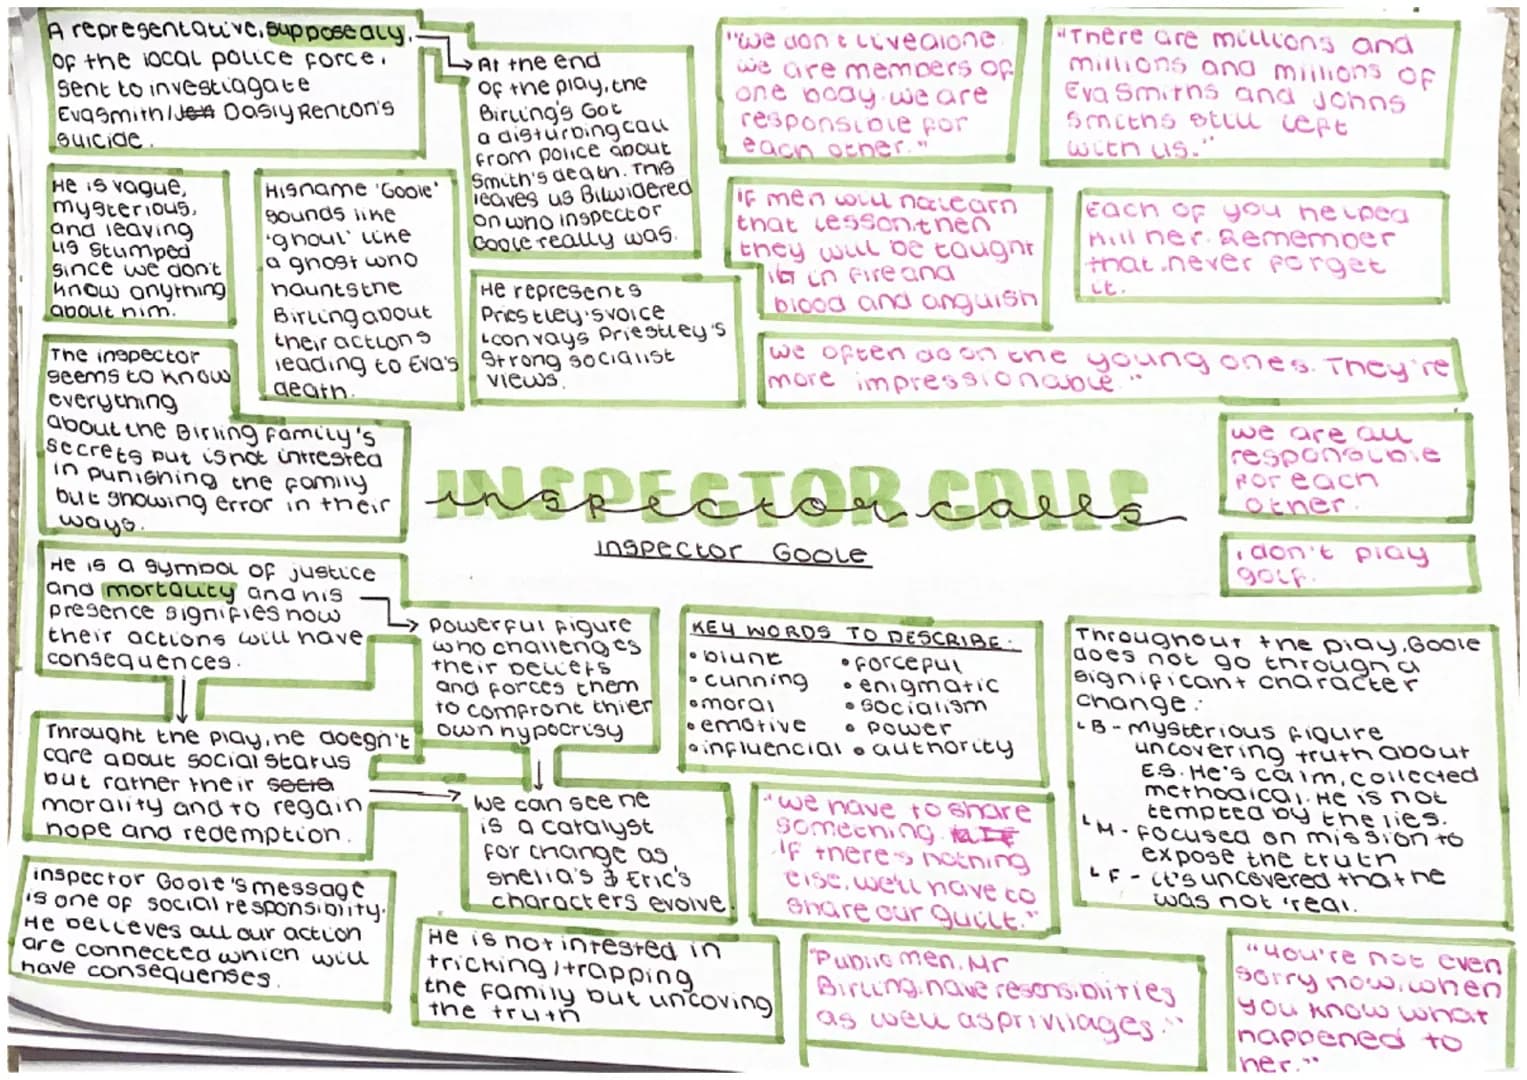 A representative, supposedly,
of the local police force,
sent to investiagate
Eva Smith/ Dasiy Renton's
suicide.
At the end
of the play, the
Birling's Got
a disturbing call
from police about
Smith's death. This
leaves us Bilwidered
on who inspector
Goole really was.
He is vague,
mysterious,
and leaving
us stumped
since we don't
know anything
about him.
His name 'Goole'
sounds like
'ghoul' like
a ghost who
haunts the
Birling about
their actions
leading to Eva's
death.
He represents
Priestley's voice
convays Priestley's
strong socialist
views.
The inspector
seems to know
everything
about the Birling Family's
secrets but is not intrested
in punishing the family
but showing error in their
ways.
"We don't live alone
we are members of
one body. we are
responsible for
each other."
"There are millions and
millions and millions of
Eva Smiths and Johns
Smiths still left
with us."
If men will not learn
that lesson, then
they will be taught
it in fire and
blood and anguish
Each of you helped
kill her. Remember
that. never forget
it.
we often do on the young ones. They're
more impressionable."
we are all
responsible
for each
other.
I don't play
golf.
INSPECTOR CALLS
inspector calls
Inspector Goole
He is a symbol of justice
and mortality and his
presence signifies how
their actions will have
consequences.
Powerful figure
who challenges
their beliefs
and forces them
to comfront thier
own hypocrisy
Throught the play, he doesn't
care about social status
but rather their socia
morality and to regain
hope and redemption.
we can see he
is a catalyst
for change as
shelia's & Eric's
characters evolve.
inspector Goole's message
is one of social responsibility.
He believes all our action
are connected which will
have consequenses.
He is not intrested in
tricking/trapping
the family but uncoving
the truth
KEY WORDS TO DESCRIBE:
• blunt • forceful
• cunning • enigmatic
• moral • socialism
• emotive • power
• influencial • authority
"we have to share
something.
If there's nothing
else, we'll have to
share our guilt."
"Public men, Mr
Birling, have resonsiblities
as well as privilages."
Throughout the play, Goole
does not go through a
significant character
change:
B - Mysterious figure
uncovering truth about
E.S. He's calm, collected
methodical. He is not
tempted by the lies.
M - Focused on mission to
expose the truth
F - it's uncovered that he
was not 'real.
"You're not even
sorry now, when
you know what
happened to
her."